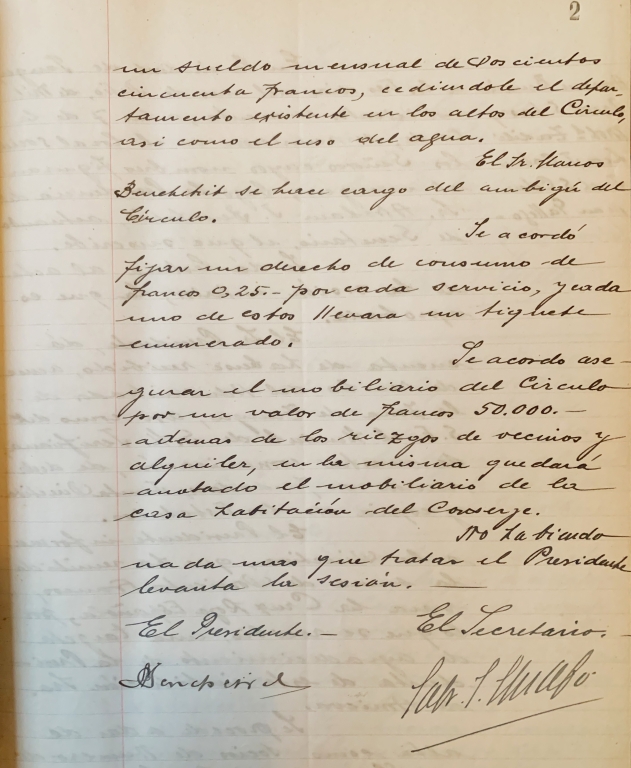 2
un sueldo mensual de doscientos
cincuenta francos, cediendole el depar-
tamento existente en los altos del Círculo,
asi como el uso del agua.
El Sr. Marcos
Benchetrit se hace cargo del ambigú del
Círculo.
Se acordó
fijar un derecho de consumo de
francos 0,25.- por cada servicio, y cada
uno de estos llevara un tiquete
enumerado.
Se acordo ase-
gurar el mobiliario del Círculo
por un valor de francos 50.000.-
ademas de los riezgos de vecinos y
alquiler, en la misma quedará
anotado el mobiliario de la
casa habitación del Converge.
No habiendo
nada mas que tratar el Presidente
levanta la sesión.
El Presidente.- El Secretario.-